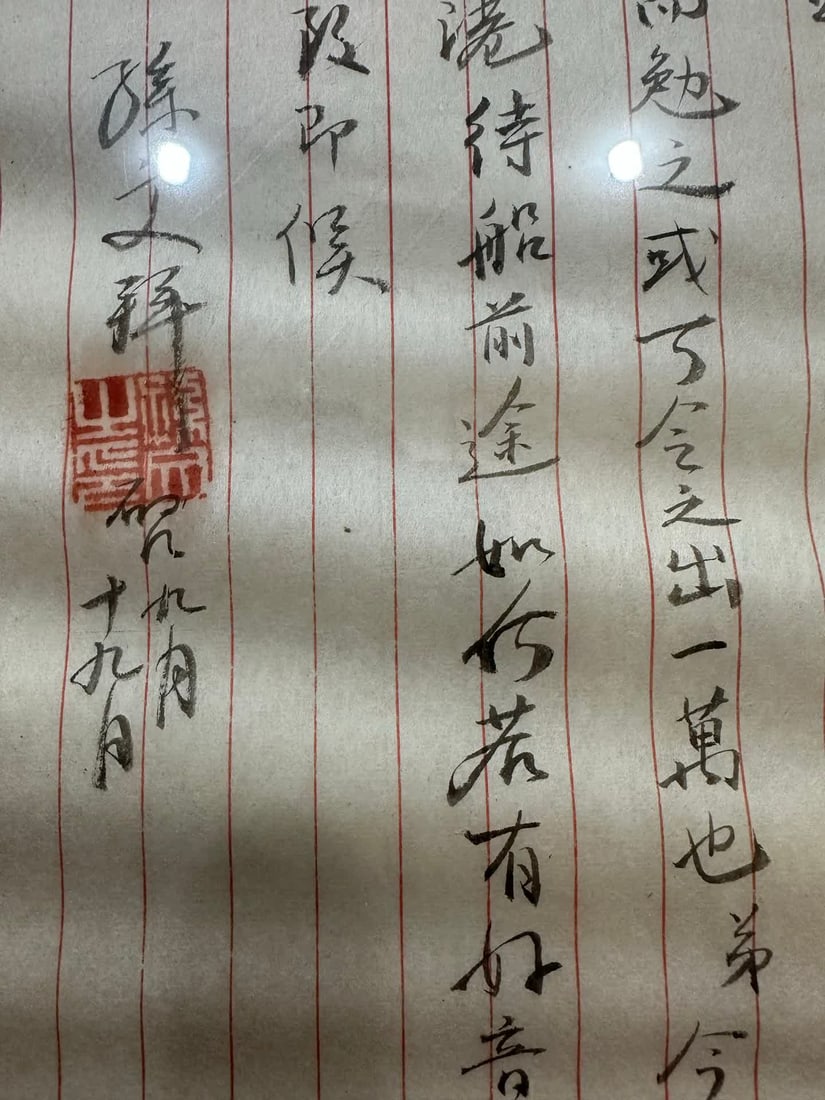 而勉之或可令之出一萬也弟今
港待船前途如何若有好音
即候
孫文拜啓九月
十九日
孫文之印